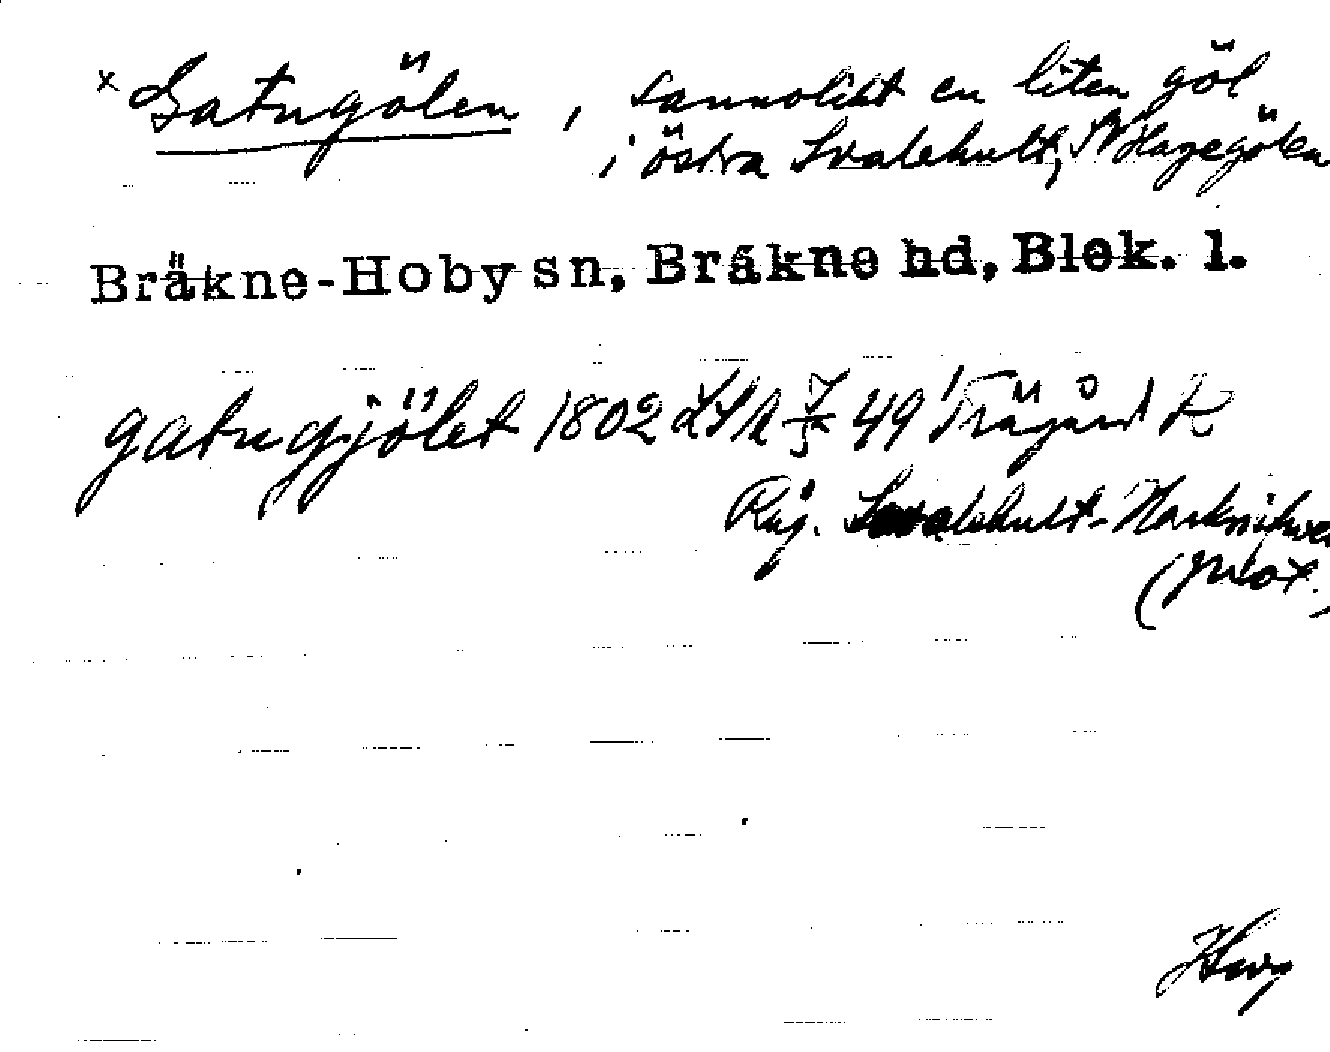 x Gatugölen, sannolikt en liten göl
i östra Svalehult, N Hagegölen
Bräkne-Hoby sn, Bräkne hd, Blek. l.
gatugjölet 1802 LSA 49 Trägård K
Råg. Svalehult-
(prot.)